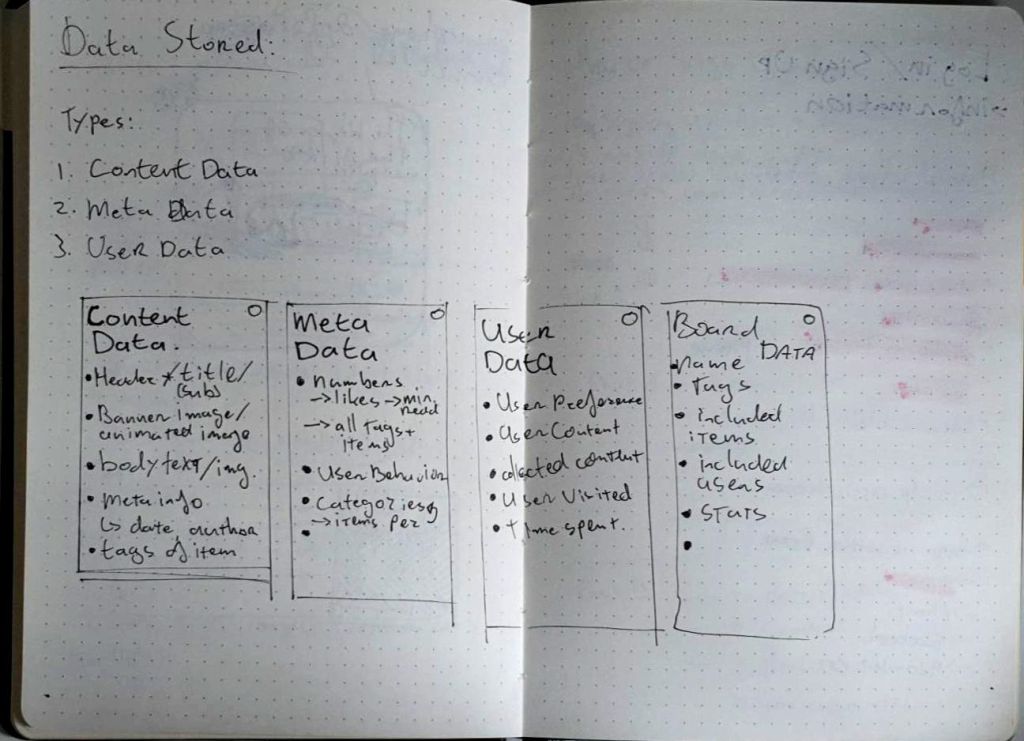 Data Stored:
Types:
1. Content Data
2. Meta Data
3. User Data
Content
Data.
• Header * title/
(sub)
• Banner Image/
animated image
• body text/img.
• meta info
↳ date, author
• tags of item
Meta
Data
• numbers
→ likes → min.
read
→ all tags +
items
• User Behavior
• Categories
→ items per
•
User
Data
• User Preference
• User Content
• collected content
• User Visited
• time spent.
Board
DATA
• Name
• Tags
• included
items
• included
users
• Stats
•
Log in / Sign UP
information